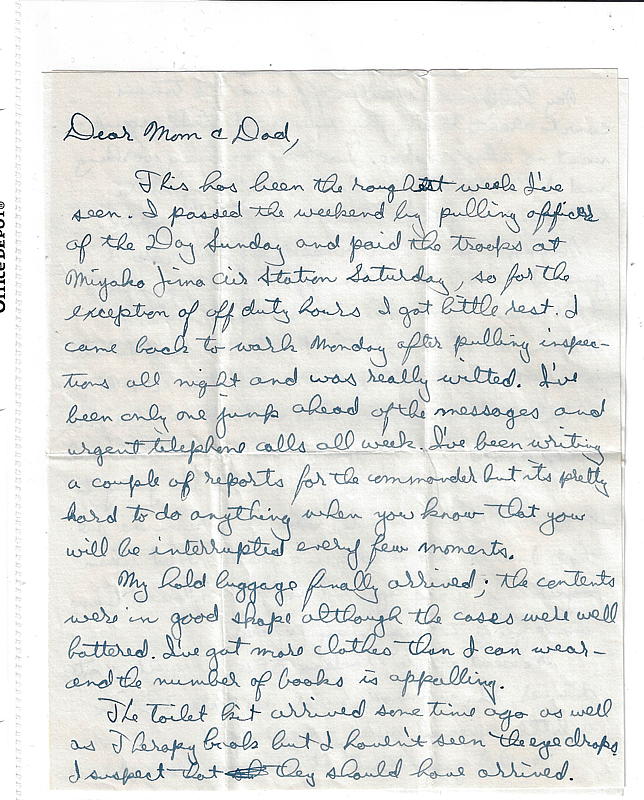 Dear Mom & Dad,
This has been the roughest week I've
seen. I passed the weekend by pulling officer
of the Day Sunday and paid the troops at
Miyako Jima Air Station Saturday, so for the
exception of off duty hours I got little rest. I
came back to work Monday after pulling inspec-
tions all night and was really wilted. I've
been only one jump ahead of the messages and
urgent telephone calls all week. I've been writing
a couple of reports for the commander but its pretty
hard to do anything when you know that you
will be interrupted every few moments.
My hold luggage finally arrived; the contents
were in good shape although the cases were well
battered. I've got more clothes than I can wear -
and the number of books is appalling.
The toilet kit arrived some time ago as well
as Therapy book but I haven't seen the eye drops
I suspect that they should have arrived.
Office DEPOT®